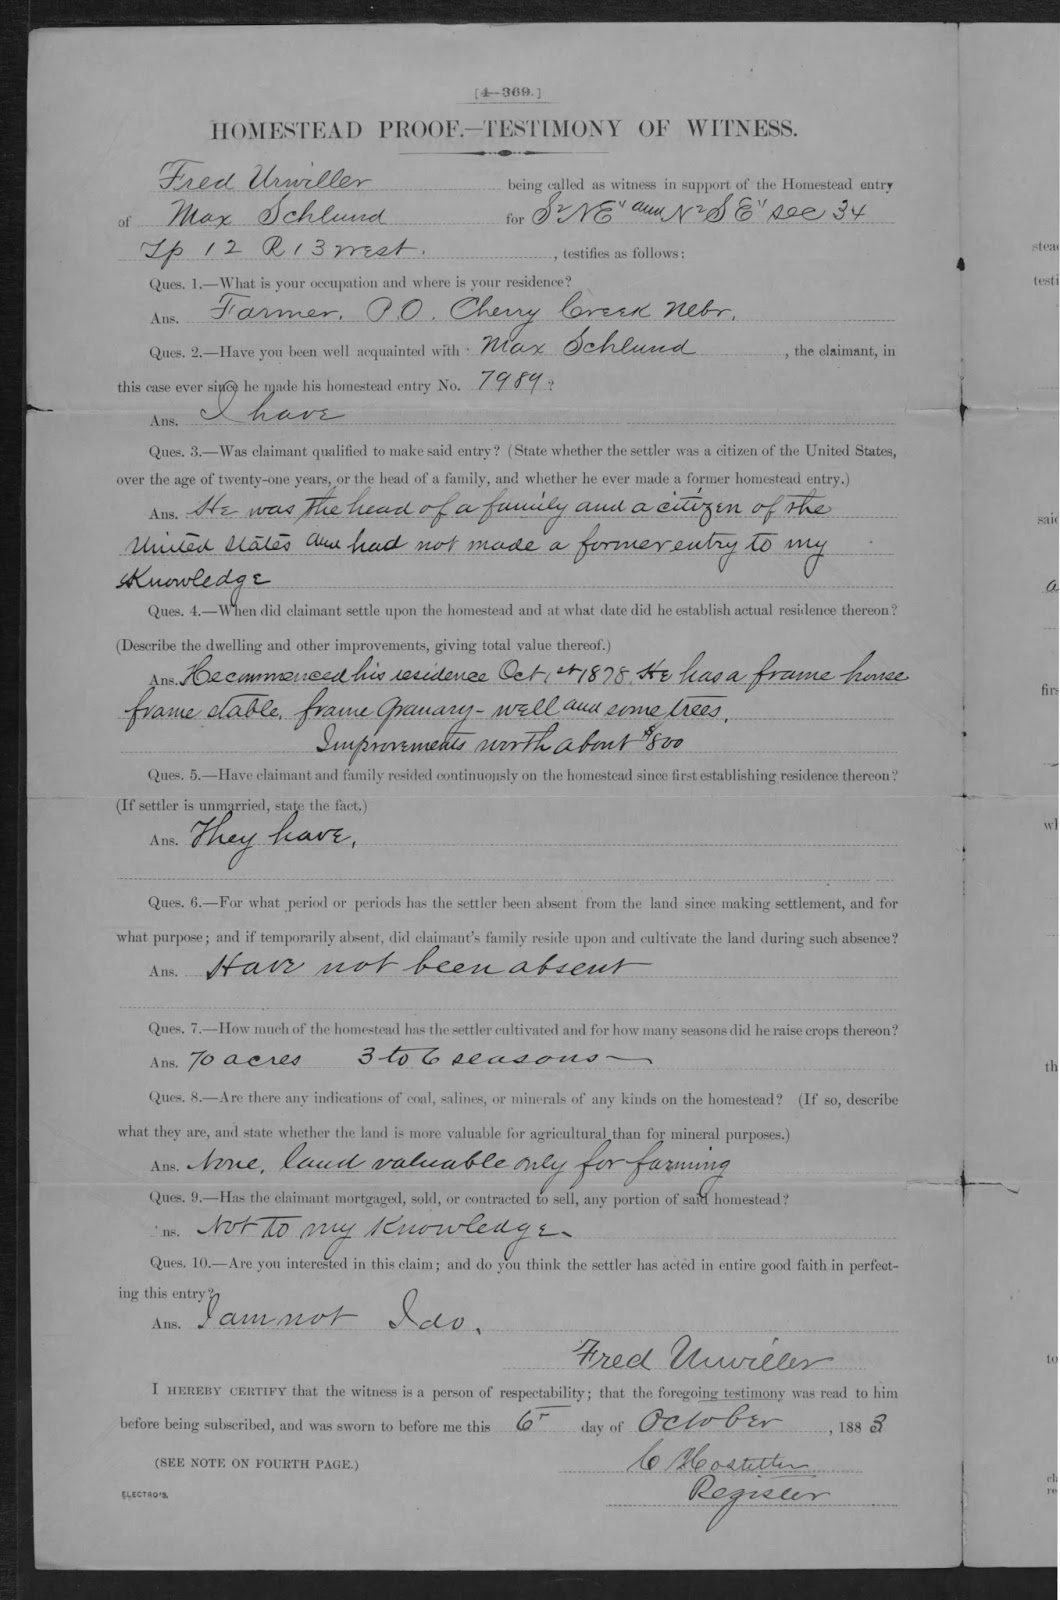 [4—369.]
HOMESTEAD PROOF.—TESTIMONY OF WITNESS.
Fred Urwiller being called as witness in support of the Homestead entry
of Max Schlund for S2 NE" and N2 SE" sec 34
Tp 12 R 13 west. , testifies as follows:
Ques. 1.—What is your occupation and where is your residence?
Ans. Farmer. P.O. Cherry Creek Nebr.
Ques. 2.—Have you been well acquainted with Max Schlund , the claimant, in
this case ever since he made his homestead entry No. 7989?
Ans. I have
Ques. 3.—Was claimant qualified to make said entry? (State whether the settler was a citizen of the United States,
over the age of twenty-one years, or the head of a family, and whether he ever made a former homestead entry.)
Ans. He was the head of a family and a citizen of the
United States and had not made a former entry to my
Knowledge
Ques. 4.—When did claimant settle upon the homestead and at what date did he establish actual residence thereon?
(Describe the dwelling and other improvements, giving total value thereof.)
Ans. He commenced his residence Oct. 1st 1878. He has a frame house
frame stable, frame Granary - well and some trees.
Improvements worth about $800
Ques. 5.—Have claimant and family resided continuously on the homestead since first establishing residence thereon?
(If settler is unmarried, state the fact.)
Ans. They have.
Ques. 6.—For what period or periods has the settler been absent from the land since making settlement, and for
what purpose; and if temporarily absent, did claimant's family reside upon and cultivate the land during such absence?
Ans. Have not been absent
Ques. 7.—How much of the homestead has the settler cultivated and for how many seasons did he raise crops thereon?
Ans. 70 acres 3 to 6 seasons—
Ques. 8.—Are there any indications of coal, salines, or minerals of any kinds on the homestead? (If so, describe
what they are, and state whether the land is more valuable for agricultural than for mineral purposes.)
Ans. None, land valuable only for farming
Ques. 9.—Has the claimant mortgaged, sold, or contracted to sell, any portion of said homestead?
ns. Not to my Knowledge.
Ques. 10.—Are you interested in this claim; and do you think the settler has acted in entire good faith in perfect-
ing this entry?
Ans. I am not I do.
Fred Urwiller
I HEREBY CERTIFY that the witness is a person of respectability; that the foregoing testimony was read to him
before being subscribed, and was sworn to before me this 6" day of October , 1883
(SEE NOTE ON FOURTH PAGE.) C Hostetter
ELECTRO'S. Register